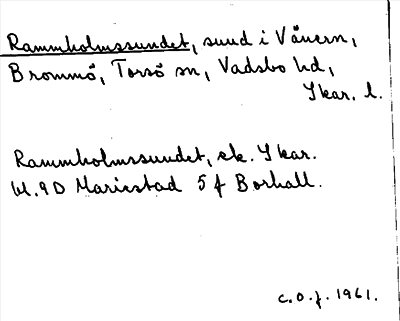 Rammholmssundet, sund i Vänern,
Brommö, Torsö sn, Vadsbo hd,
Skar. l.
Rammholmssundet, ek. Skar.
bl. 9D Mariestad 5 f Borhall.
C.O.f. 1961.